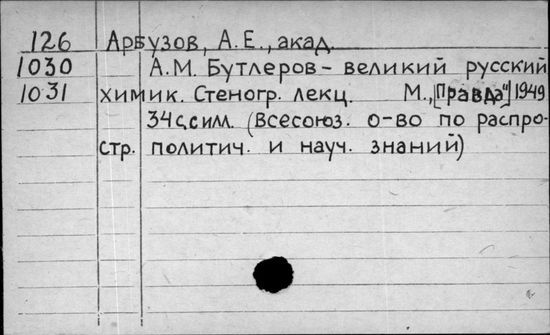 126 Арбузов, А.Е., акад.
1030 А.М. Бутлеров - великий русский
1031 химик. Стеногр. лекц. М., [„Правда“] 1949
34с, сим. (Всесоюз. о-во по распро-
стр. политич. и науч. знаний)